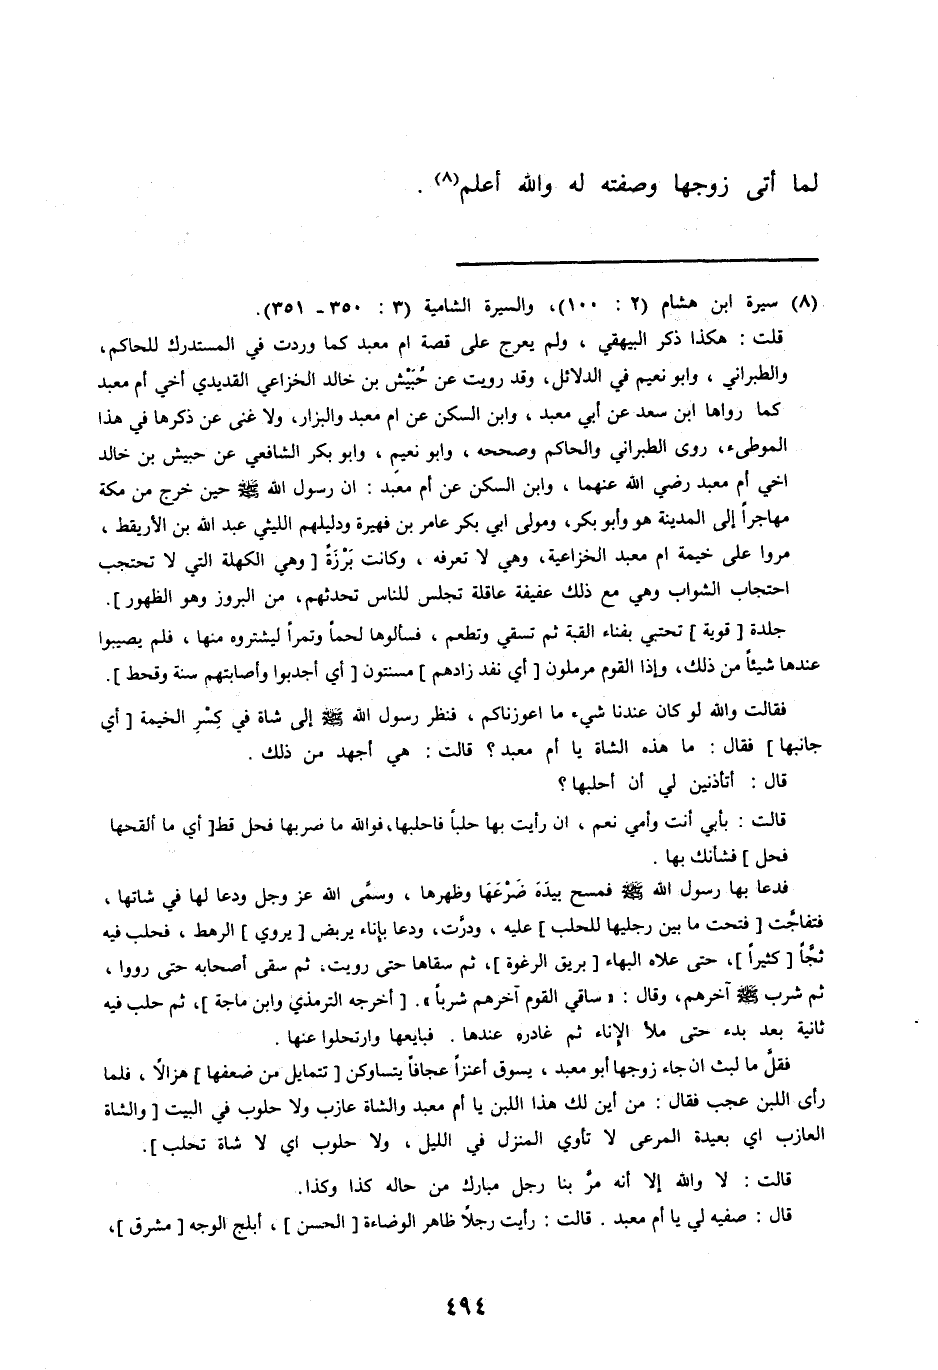 لما أتى زوجها وصفته له والله أعلم(٨) .
(٨) سيرة ابن هشام (٢ : ١٠٠)، والسيرة الشامية (٣ : ٣٥٠ - ٣٥١).
قلت : هكذا ذكر البيهقي ، ولم يعرج على قصة ام معبد كما وردت في المستدرك للحاكم،
والطبراني ، وابو نعيم في الدلائل، وقد رويت عن حُبَيْش بن خالد الخزاعي القديدي أخي أم معبد
كما رواها ابن سعد عن أبي معبد ، وابن السكن عن ام معبد والبزار، ولا غنى عن ذكرها في هذا
الموطىء، روى الطبراني والحاكم وصححه ، وابو نعيم ، وابو بكر الشافعي عن حبيش بن خالد
اخي أم معبد رضي الله عنهما ، وابن السكن عن أم معبد : ان رسول الله ﷺ حين خرج من مكة
مهاجراً إلى المدينة هو وأبو بكر، ومولى ابي بكر عامر بن فهيرة ودليلهم الليثي عبد الله بن الأريقط ،
مروا على خيمة ام معبد الخزاعية، وهي لا تعرفه ، وكانت بَرْزَةً [ وهي الكهلة التي لا تحتجب
احتجاب الشواب وهي مع ذلك عفيفة عاقلة تجلس للناس تحدثهم، من البروز وهو الظهور ].
جلدة [ قوية ] تحتبي بفناء القبة ثم تسقي وتطعم ، فسألوها لحماً وتمراً ليشتروه منها ، فلم يصيبوا
عندها شيئاً من ذلك، وإذا القوم مرملون [ أي نفد زادهم ] مسنتون [ أي أجدبوا وأصابتهم سنة وقحط ].
فقالت والله لو كان عندنا شيء ما اعوزناكم ، فنظر رسول الله ﷺ إلى شاة في كِسْرِ الخيمة [ أي
جانبها ] فقال : ما هذه الشاة يا أم معبد ؟ قالت : هي أجهد من ذلك .
قال : أتأذنين لي أن أحلبها ؟
قالت : بأبي أنت وأمي نعم ، ان رأيت بها حلباً فاحلبها، فوالله ما ضربها فحل قط[ أي ما ألقحها
فحل ] فشأنك بها .
فدعا بها رسول الله ﷺ فمسح بيدَه ضَرْعَهَا وظهرها ، وسمَّى الله عز وجل ودعا لها في شاتها ،
فتفاجَّت [ فتحت ما بين رجليها للحلب ] عليه ، ودرَّت، ودعا بإناء يربض [ يروي ] الرهط ، فحلب فيه
ثجَّاً [ كثيراً ]، حتى علاه البهاء [ بريق الرغوة ]، ثم سقاها حتى رويت، ثم سقى أصحابه حتى رووا ،
ثم شرب ﷺ آخرهم، وقال : « ساقي القوم آخرهم شرباً ». [ أخرجه الترمذي وابن ماجة ]، ثم حلب فيه
ثانية بعد بدء حتى ملأ الإناء ثم غادره عندها . فبايعها وارتحلوا عنها .
فقلَّ ما لبث ان جاء زوجها أبو معبد ، يسوق أعنزاً عجافاً يتساوكن [ تتمايل من ضعفها ] هزالاً ، فلما
رأى اللبن عجب فقال : من أين لك هذا اللبن يا أم معبد والشاة عازب ولا حلوب في البيت [ والشاة
العازب اي بعيدة المرعى لا تأوي المنزل في الليل ، ولا حلوب اي لا شاة تحلب ].
قالت : لا والله إلا أنه مرَّ بنا رجل مبارك من حاله كذا وكذا.
قال : صفيه لي يا أم معبد . قالت : رأيت رجلاً ظاهر الوضاءة [ الحسن ] ، أبلج الوجه [ مشرق ]،
٤٩٤